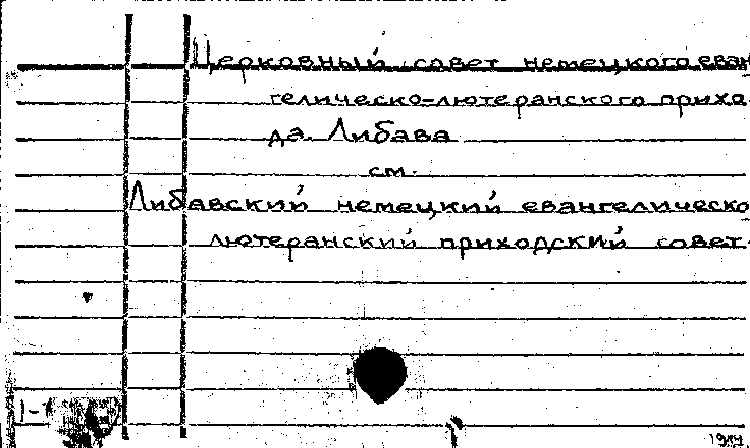 Церковный совет немецкого еван
гелическо-лютеранского прихо
да. Либава
см.
Либавский немецкий евангелическо
лютеранский приходский совет.